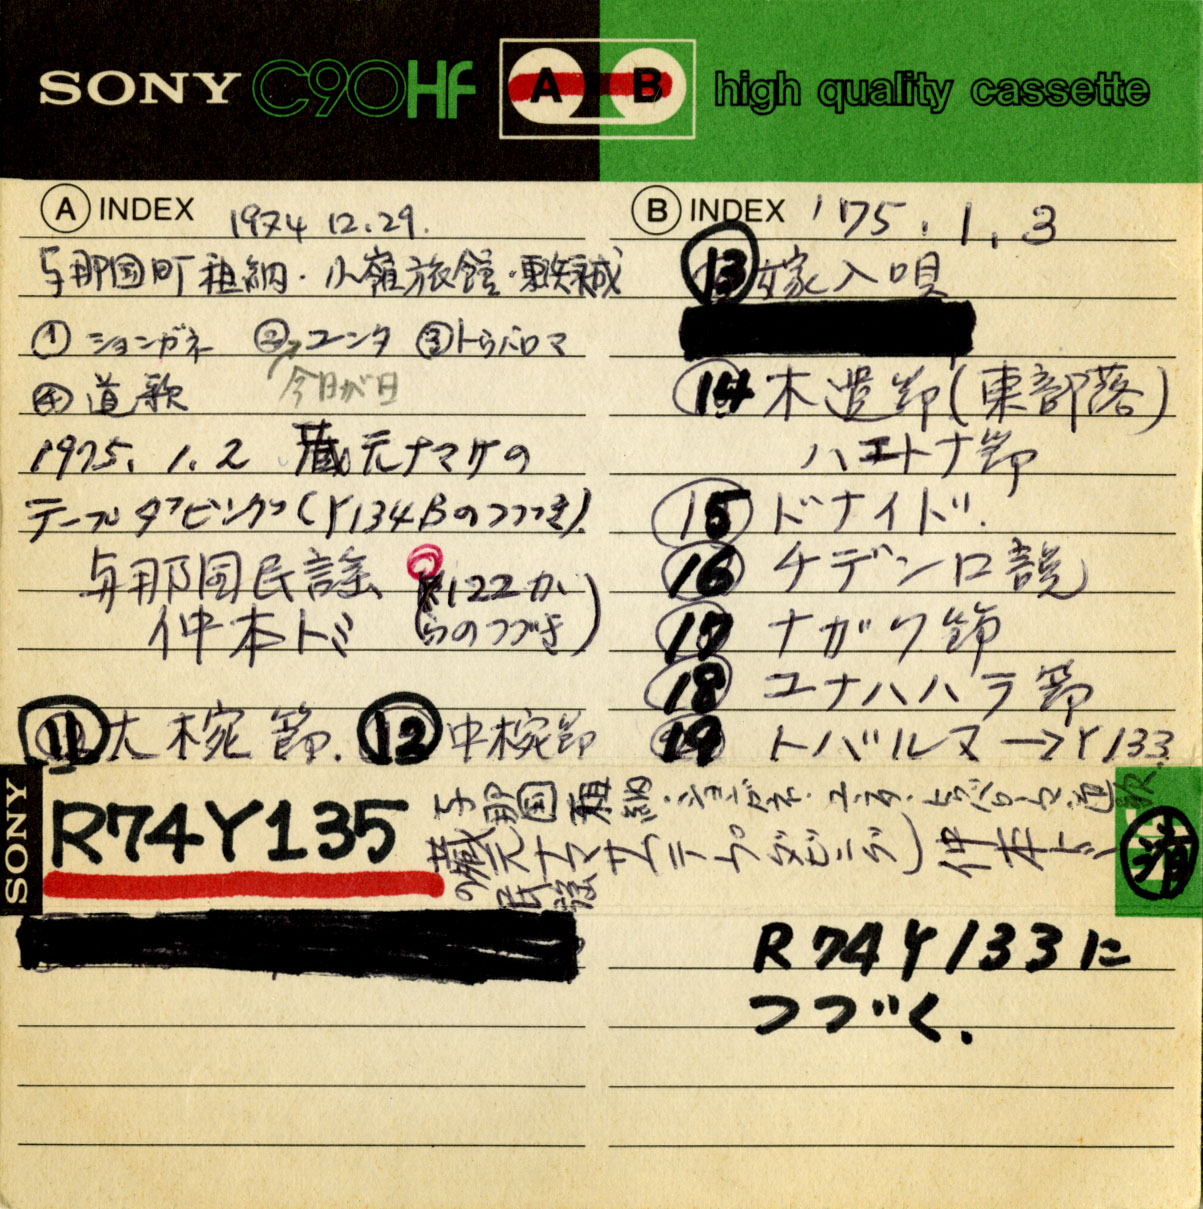 SONY C90HF A B high quality cassette
A INDEX 1974 12.29.
与那国町祖納・小嶺旅館・
① ションガネ ② ユンタ ③ トゥバロマ
今日が日
④ 道歌
1975. 1. 2 蔵元ナマケの
テープダビング(Y134Bのつづき).
与那国民謡 (122か
仲本トミ らのつづき)
11 大椀節. 12 中椀節
B INDEX '75. 1. 3
13 嫁入唄
14 木遣節(東部落)
ハエトナ節
15 ドナイド.
16 チデン口説
17 ナガク節
18 ユナハハラ節
19 トバルマ→Y133
SONY
R74Y135
与那国祖納・ションガネ・ユンタ・道
蔵元ナマ テープダビング)仲本
の民謡
済
R74Y133に
つづく.